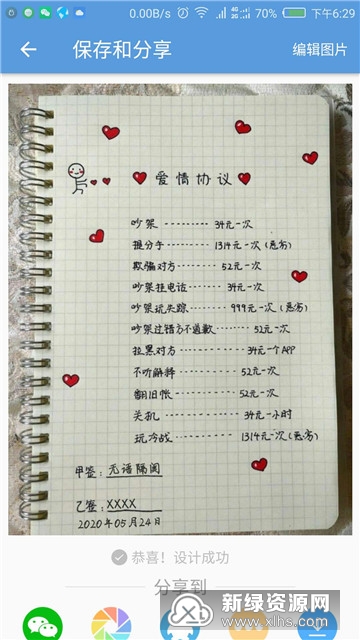 0.00B/s 70% 下午6:29
保存和分享 编辑图片
爱情协议
吵架 --------- 34元一次
提分手 --------- 1314元一次(悬穷)
欺骗对方 --------- 52元一次
吵架挂电话 ------- 34元一次
吵架玩失踪 -------- 999元一次(悬穷)
吵架过错方不道歉 ------- 52元一次
拉黑对方 ---------- 34元一个APP
不听解释 --------- 52元一次
翻旧帐 --------- 52元一次
关机 ---------- 34元一小时
玩冷战 ---------- 1314元一次(悬穷)
甲签:无语隔阂
乙签:XXXX
2020年05月24日
恭喜!设计成功
分享到
新绿资源网
www.xlhs.com